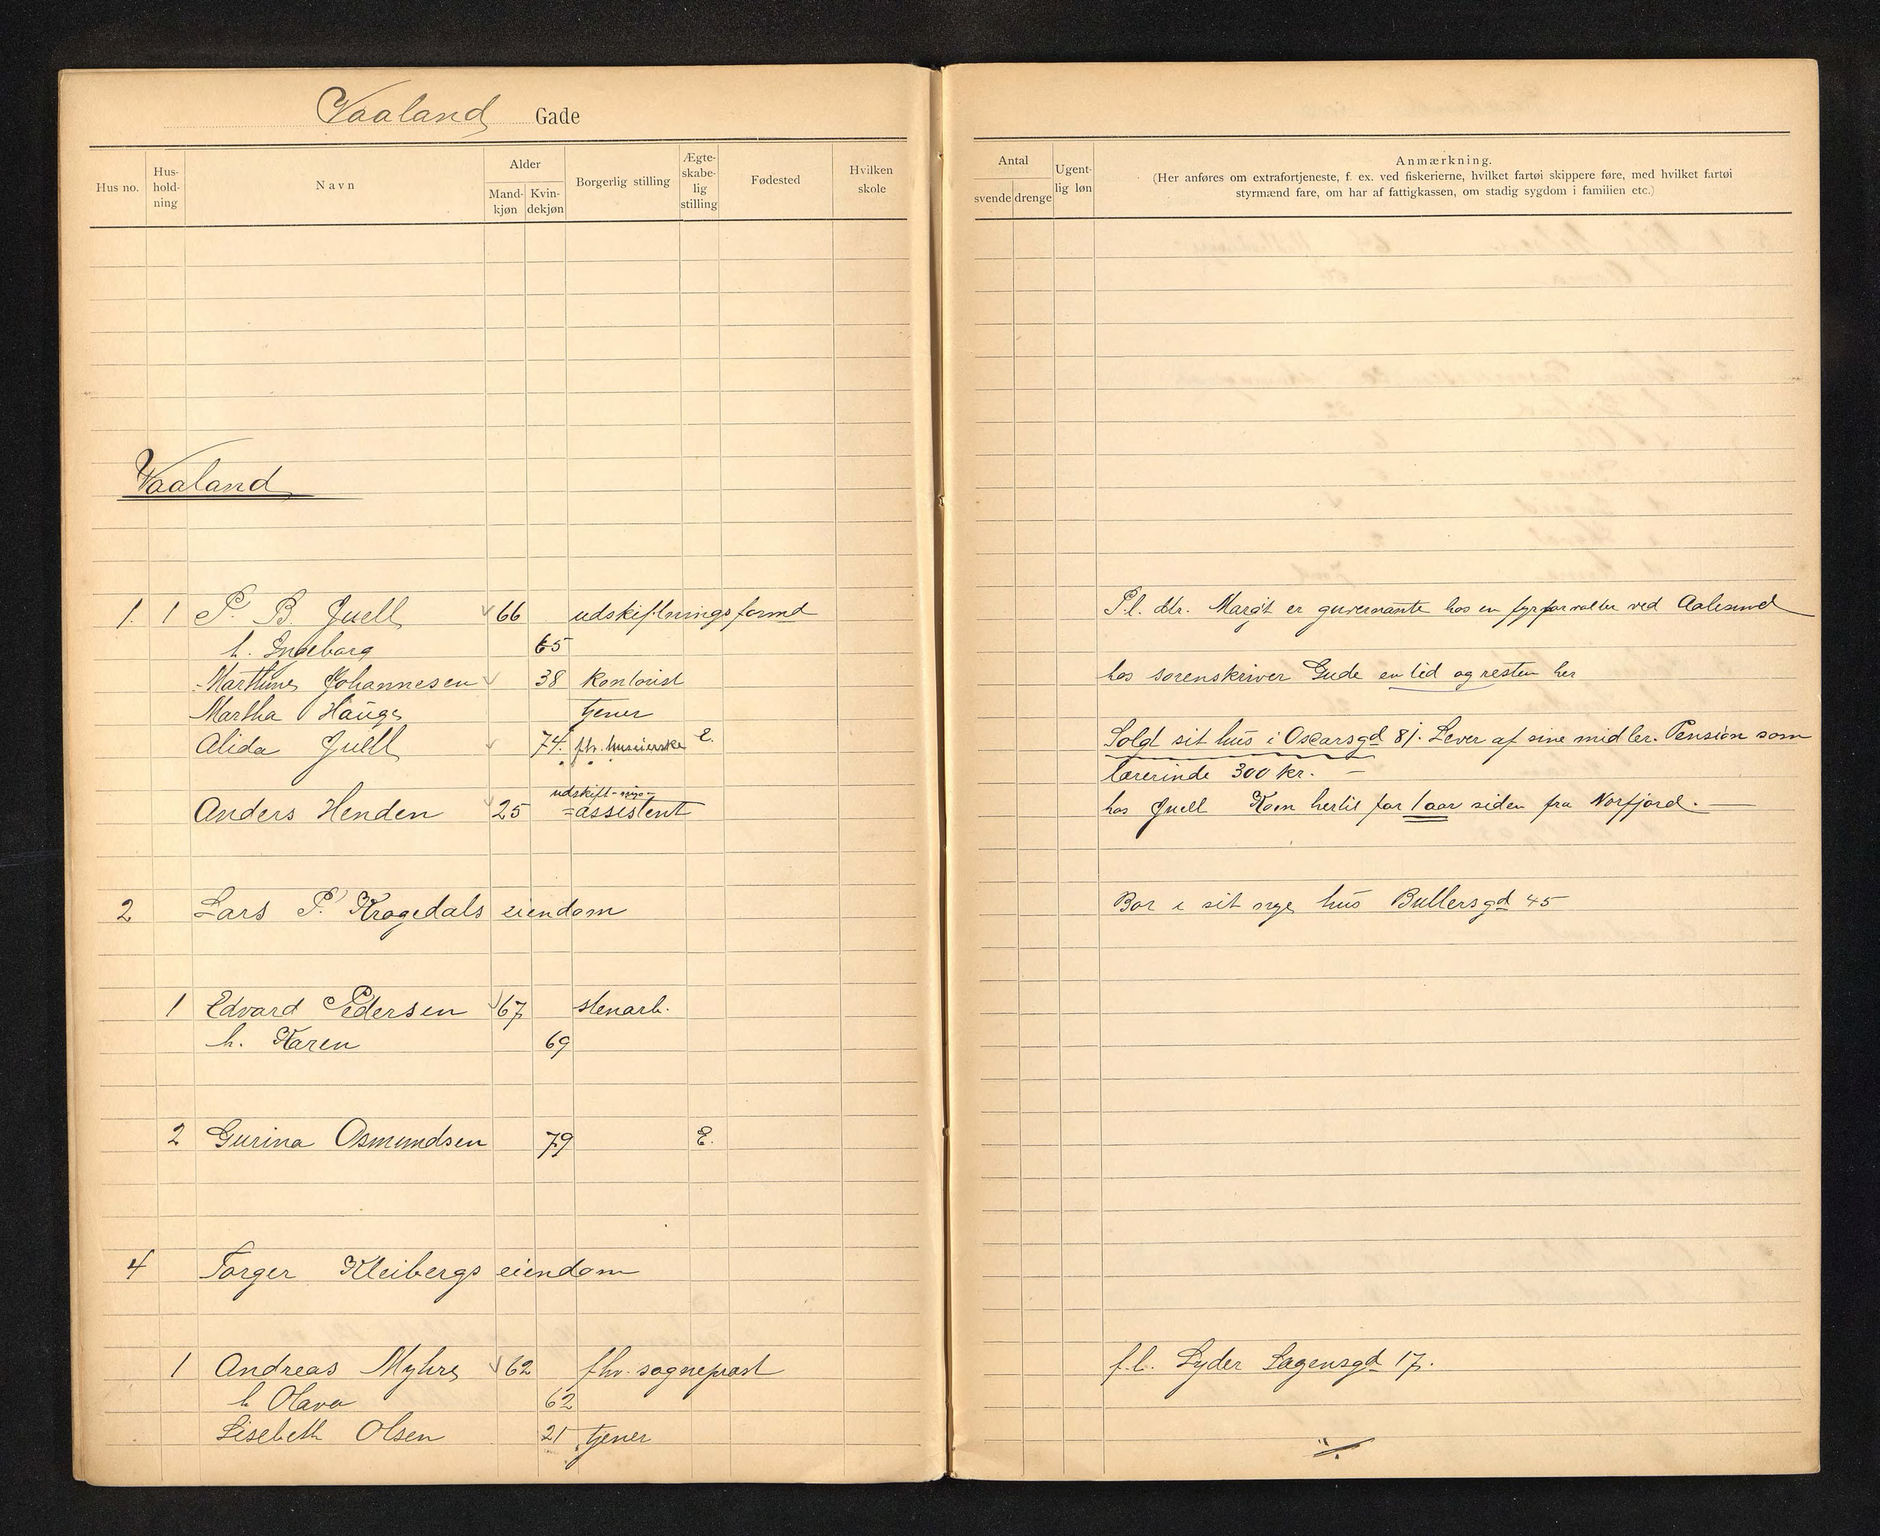 Vaaland Gade
Hus no. Hus-hold-ning Navn Alder Mand-kjøn Kvin-dekjøn Borgerlig stilling Ægte-skabe-lig stilling Fødested Hvilken skole
Antal svende drenge Ugent-lig løn Anmærkning.
(Her anføres om extrafortjeneste, f. ex. ved fiskerierne, hvilket fartøi skippere føre, med hvilket fartøi
styrmænd fare, om har af fattigkassen, om stadig sygdom i familien etc.)
Vaaland
1. 1 P. B. Juell 66 udskiftningsformd P.l. dtr. Margit er guvernante hos en fyrforvalter ved Aalesund
h. Ingeborg 65
Marthine Johannesen 38 kontorist hos sorenskriver Gude en tid og resten her
Martha Hauge tjener
Alida Juell 74 fhv. huseierske E. Solgt sit hus i Oscarsgd 81. Lever af sine midler. Pension som
lærerinde 300 kr. –
Anders Henden 25 udskift-nings-
=assistent hos Juell Kom hertil for 1 aar siden fra Norfjord. —
2 Lars P. Kragedals eiendom Bor i sit nye hus Bullersgd 45
1 Edvard Pedersen 67 stenarb.
h. Karen 69
2 Gurina Osmundsen 79 E.
4 Torger Kleibergs eiendom
1 Andreas Myhre 62 fhv. sogneprest f.b. Lyder Sagensgd 17.
h Olava 62
Lisebeth Olsen 21 tjener